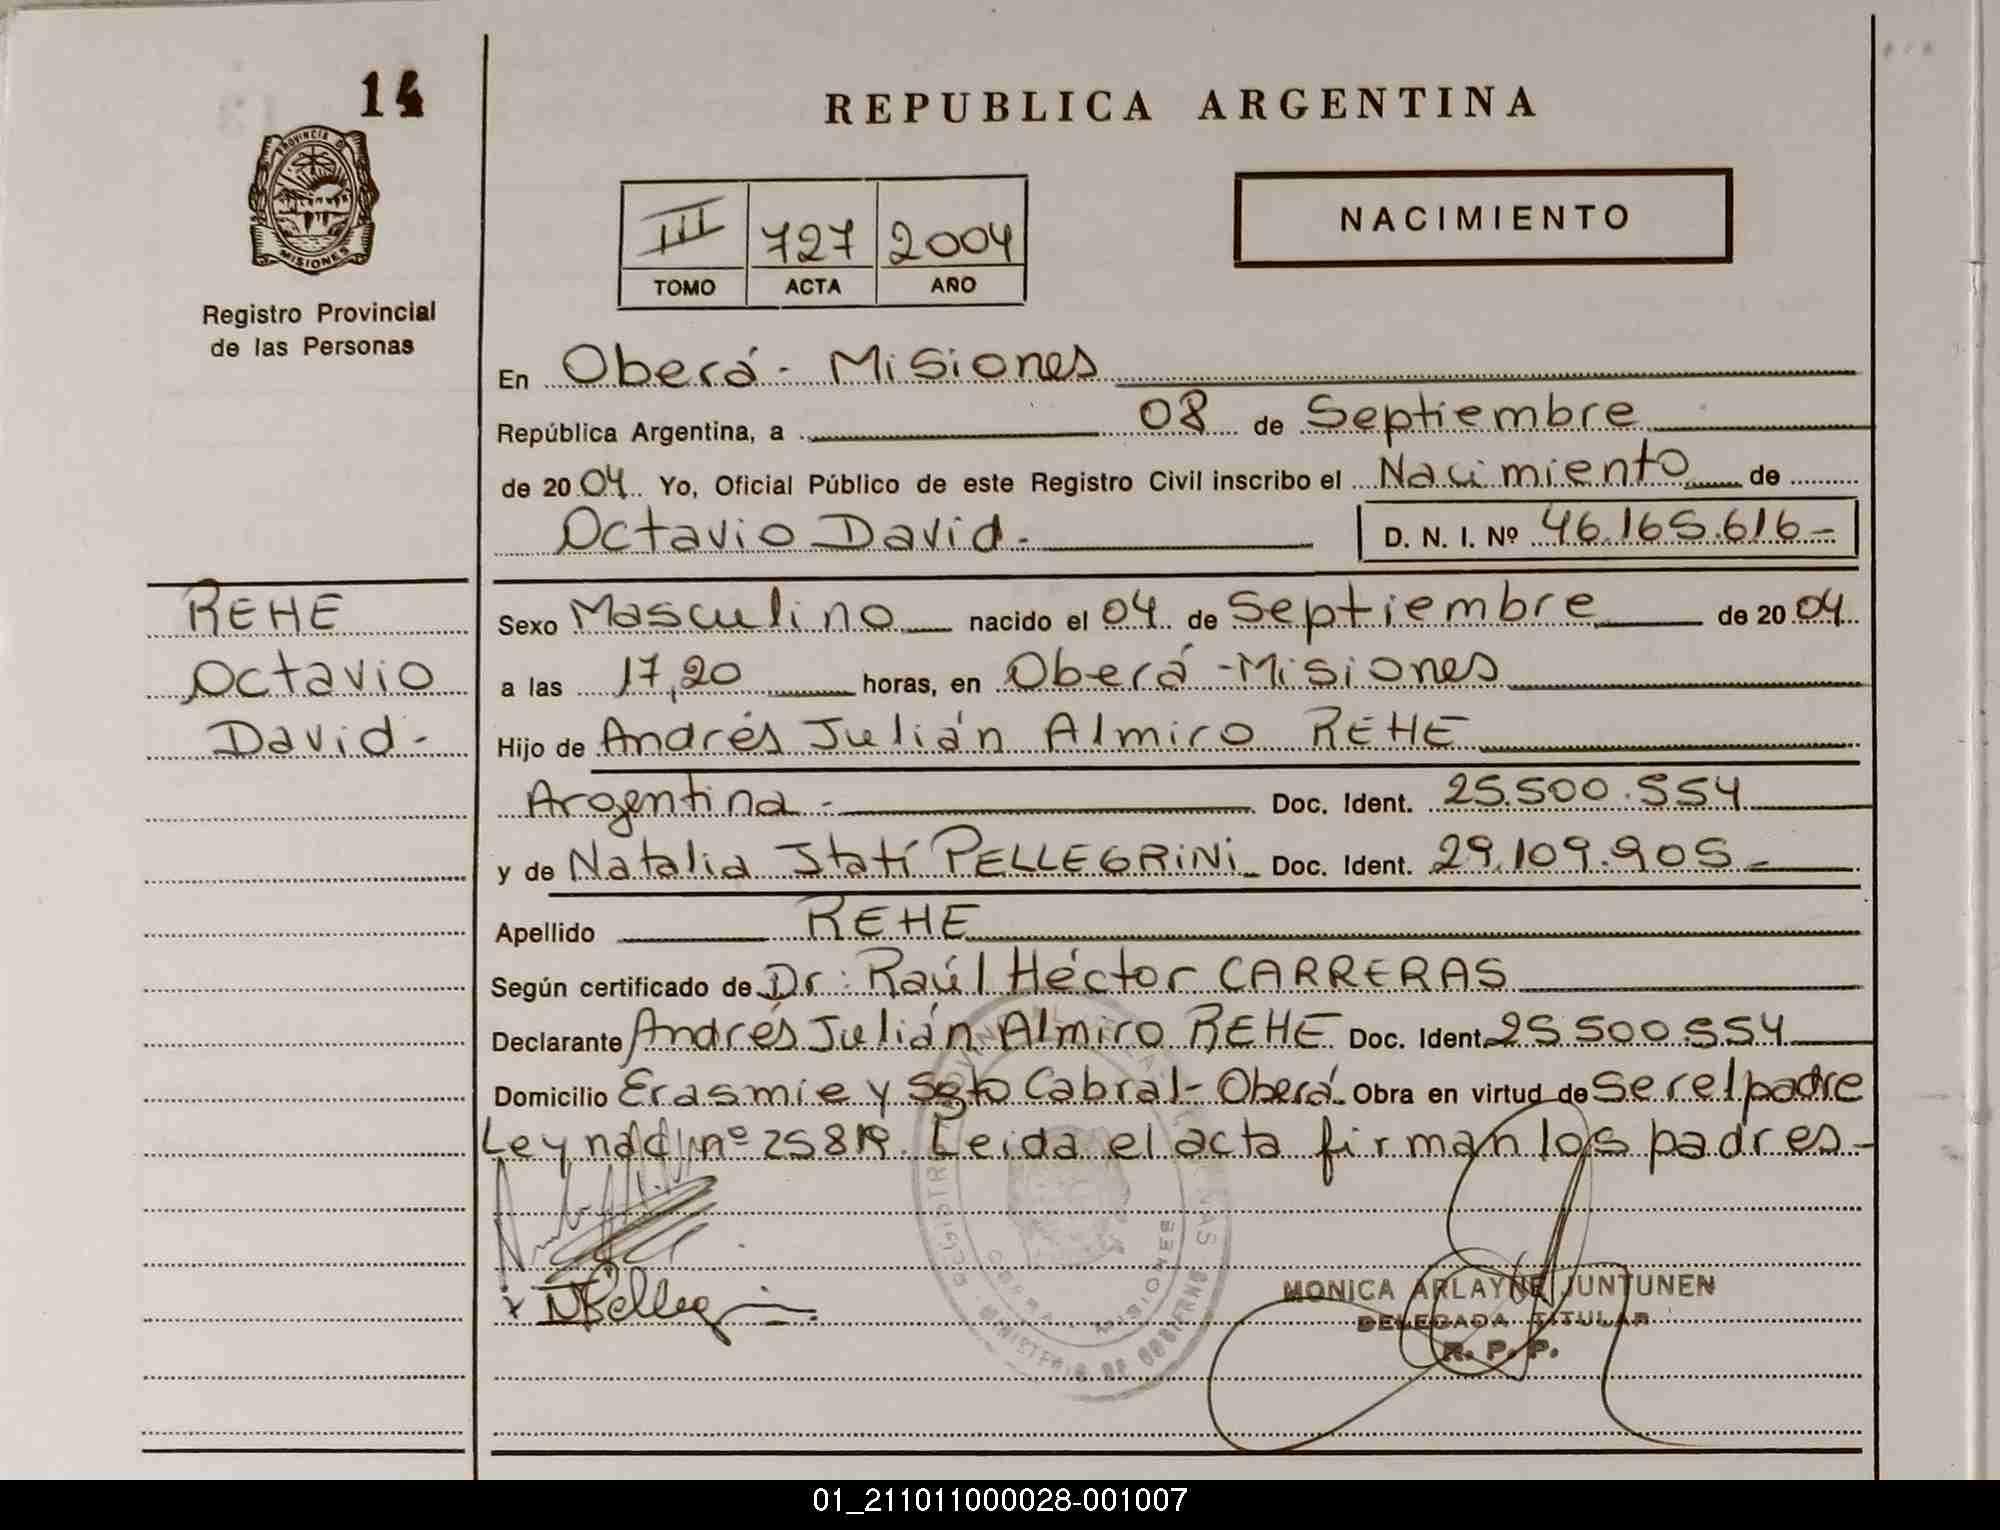 14
PROVINCIA D
MISIONES
Registro Provincial
de las Personas
REPUBLICA ARGENTINA
III 727 2004
TOMO ACTA AÑO
NACIMIENTO
En Oberá - Misiones
República Argentina, a 08 de Septiembre
de 2004 Yo, Oficial Público de este Registro Civil inscribo el Nacimiento de
Octavio David - D. N. I. Nº 46.165.616-
REHE
Octavio
David -
Sexo Masculino nacido el 04 de Septiembre de 2004
a las 17,20 horas, en Oberá - Misiones
Hijo de Andrés Julián Almiro REHE
Argentina - Doc. Ident. 25.500.554
y de Natalia Itatí PELLEGRINI Doc. Ident. 29.109.905-
Apellido REHE
Según certificado de Dr: Raúl Héctor CARRERAS
Declarante Andrés Julián Almiro REHE Doc. Ident. 25.500.554
Domicilio Erasmie y Sgto Cabral - Oberá. Obra en virtud de ser el padre
Ley nac nº 25819. Leida el acta firman los padres -
NPellegrini
OBERA - MISIONES
MINISTERIO DE GOBIERNO
MONICA ARLAYNE JUNTUNEN
DELEGADA TITULAR
R. P. P.
01_211011000028-001007